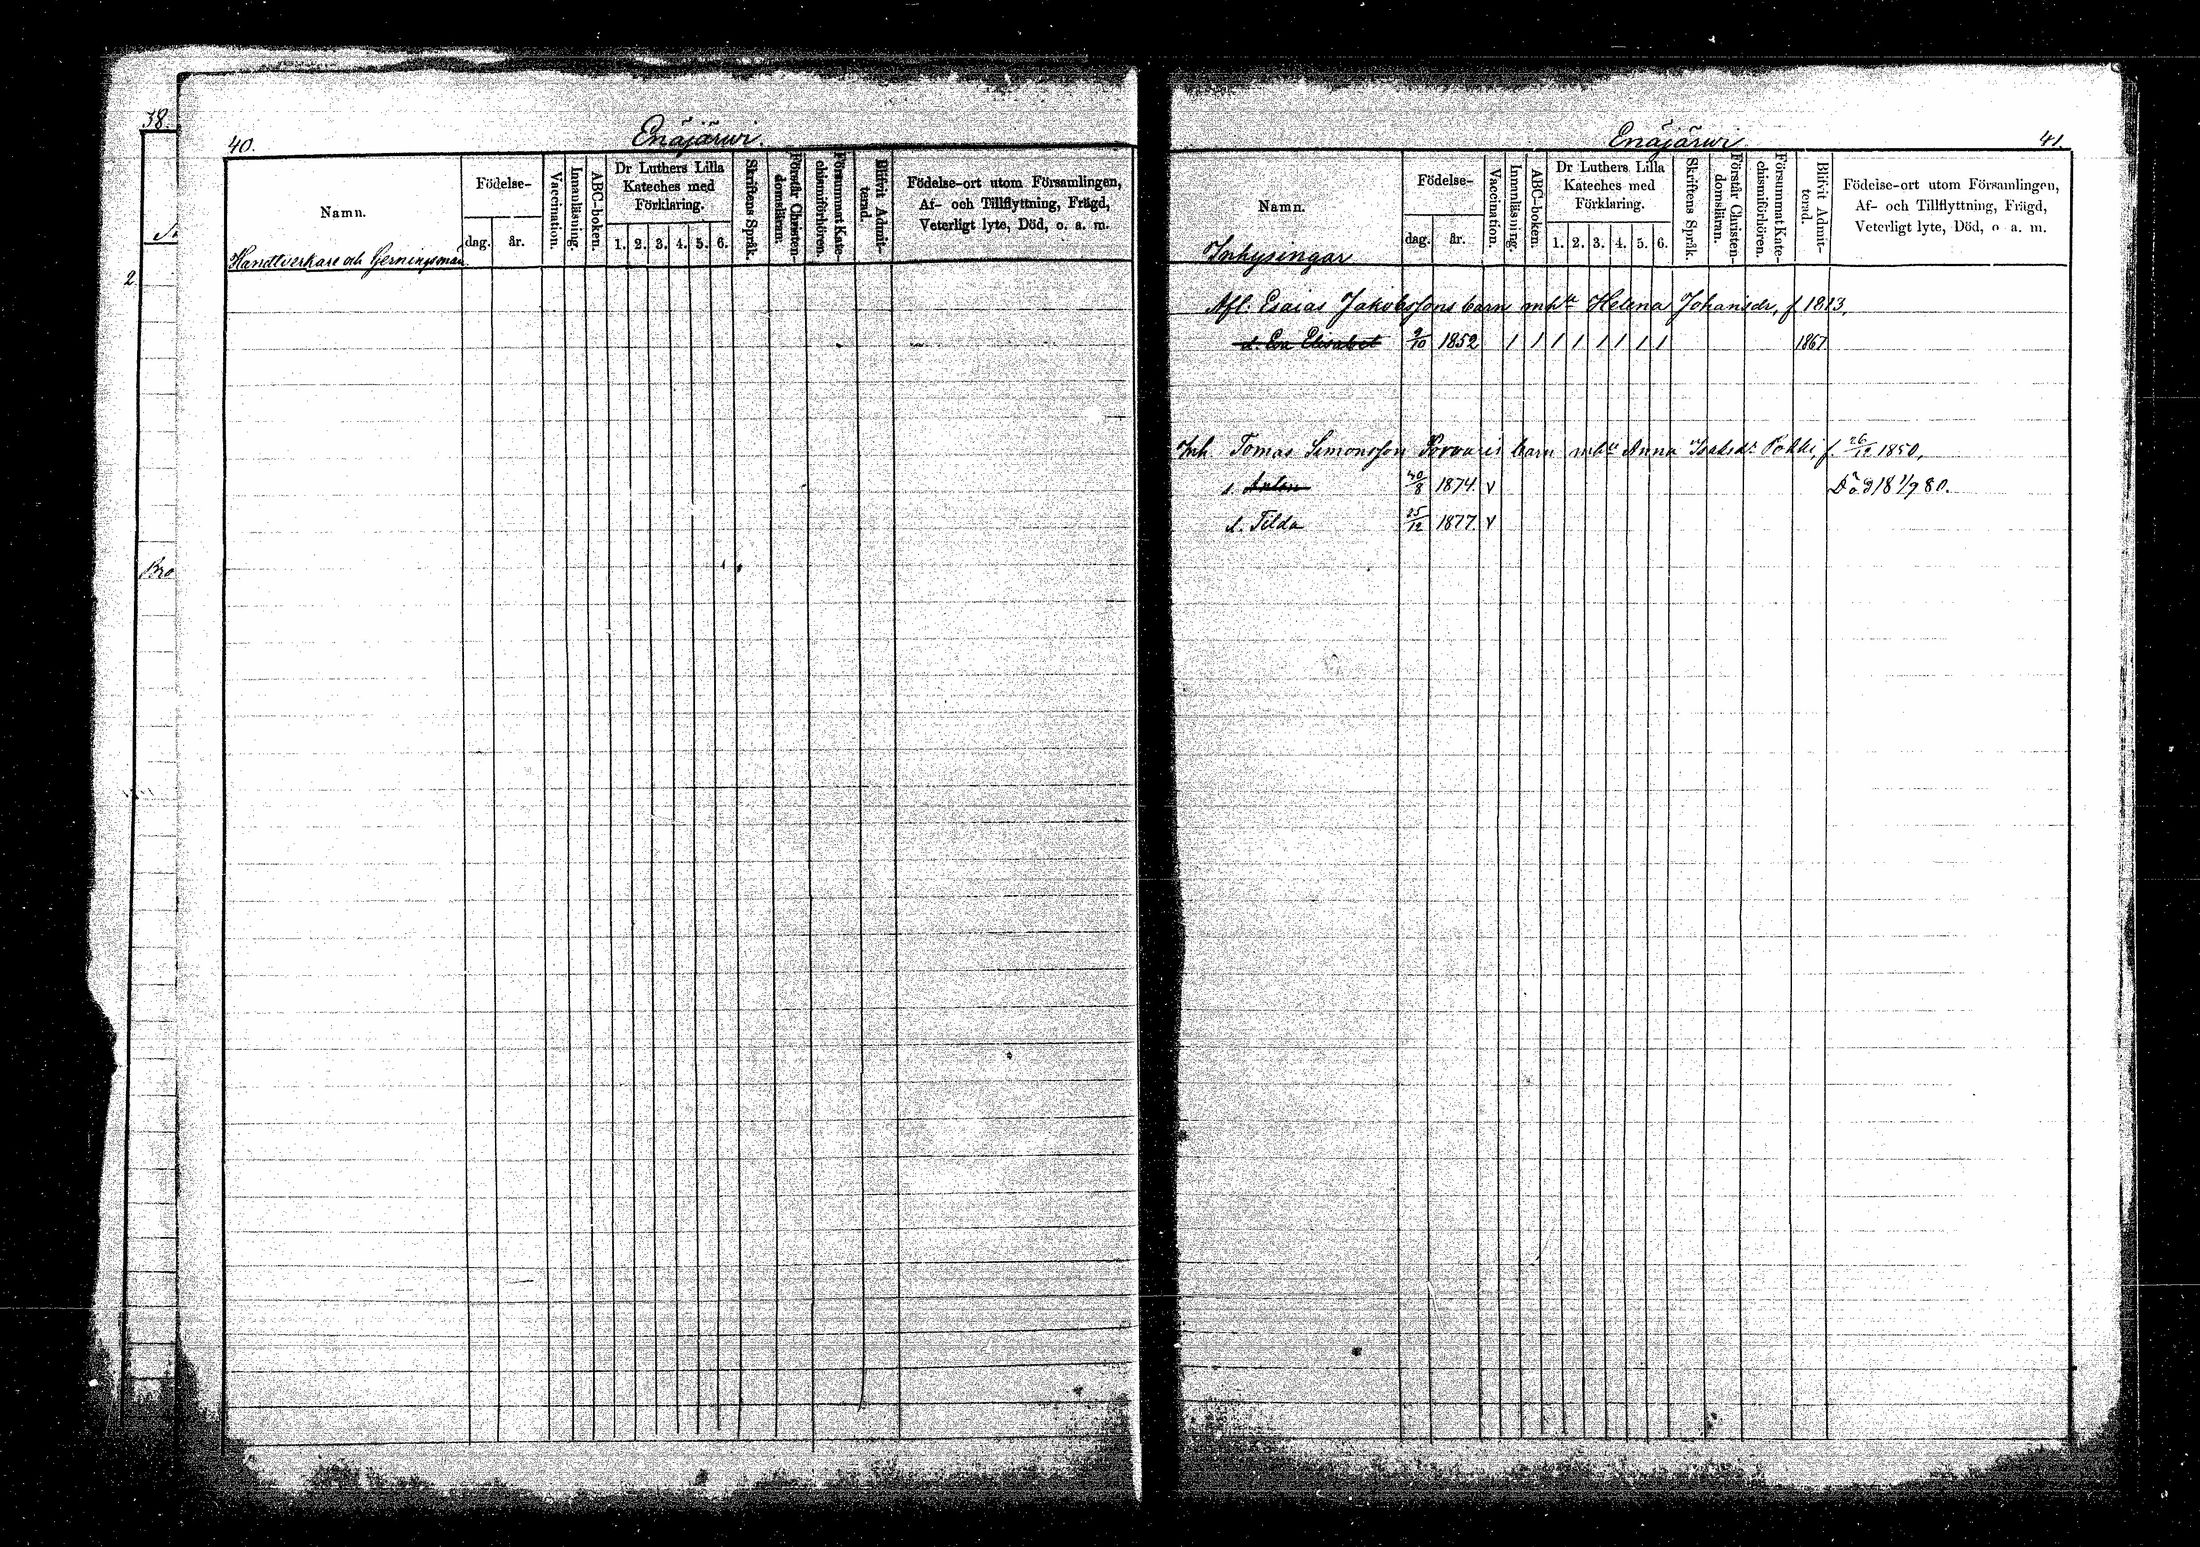 38.
40.
Enäjärwi.
Namn.
Födelse-
dag.
år.
Vaccination.
Innanläsning.
ABC-boken.
Dr Luthers Lilla
Kateches med
Förklaring.
1. 2. 3. 4. 5. 6.
Skriftens Språk.
Förstår Christen-
domsläran.
Försummat Kate-
chismiförhören.
Blifvit Admit-
terad.
Födelse-ort utom Församlingen,
Af- och Tillflyttning, Frägd,
Veterligt lyte, Död, o. a. m.
Handtverkare och Gerningsmän
2
Enäjärwi
41.
Namn.
Födelse-
dag.
år.
Vaccination.
Innanläsning.
ABC-boken.
Dr Luthers Lilla
Kateches med
Förklaring.
1. 2. 3. 4. 5. 6.
Skriftens Språk.
Förstår Christen-
domsläran.
Försummat Kate-
chismiförhören.
Blifvit Admit-
terad.
Födelse-ort utom Församlingen,
Af- och Tillflyttning, Frägd,
Veterligt lyte, Död, o a. m.
Inhysingar
Afl. Esaias Jakobssons barn m h:u Helena Johansdr, f 1813,
d. Eva Elisabet 9/10 1852 / / / / / / / / 1867
Inh Tomas Simonsson Porvaris barn m h:u Anna Isaksdr f. 26/12 1850,
s. Anton 30/8 1874. v Död 18 1/9 80.
d. Tilda 25/12 1877. v